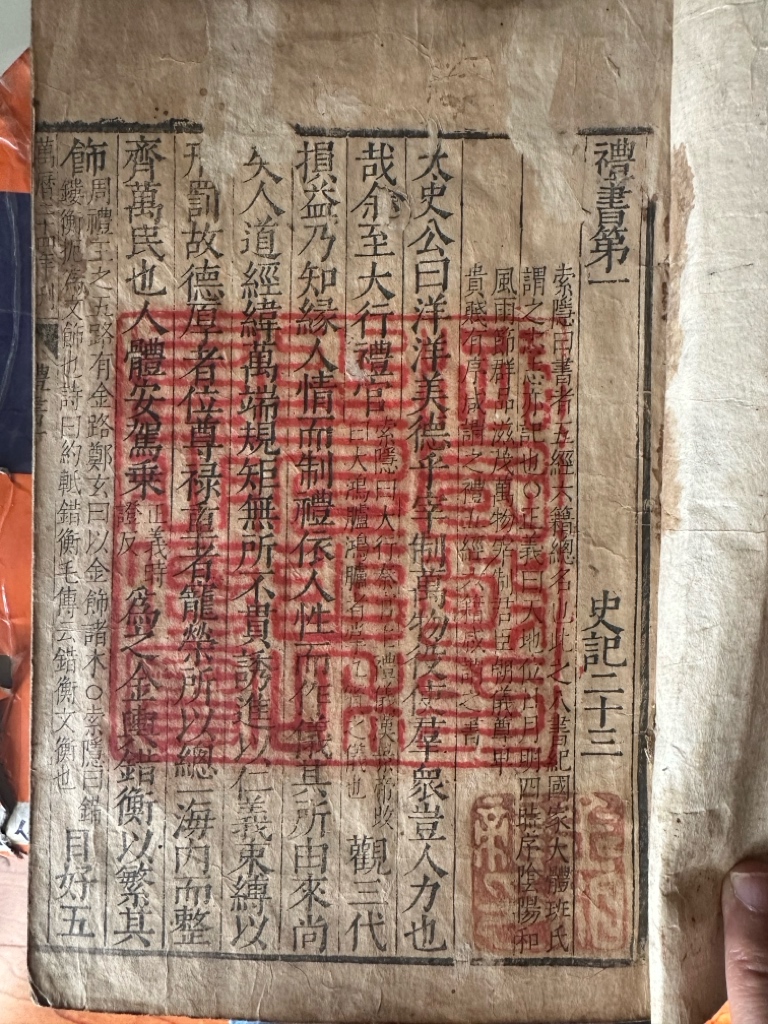 禮書第一 史記二十三
索隱曰書者五經六籍總名也此之八書記國家大體班氏
謂之志志記也〇正義曰天地位日月明四時序陰陽和
風雨節群品滋茂萬物宰制君臣朝儀尊卑
貴賤有序咸謂之禮五經六籍咸謂之書
太史公曰洋洋美德乎宰制萬物役使羣衆豈人力也
哉余至大行禮官
索隱曰大行秦官主禮儀漢景帝改
曰大鴻臚鴻臚掌九賓之儀也
觀三代
損益乃知緣人情而制禮依人性而作儀其所由來尚
矣人道經緯萬端規矩無所不貫誘進以仁義束縛以
刑罰故德厚者位尊祿重者寵榮所以總一海內而整
齊萬民也人體安駕乘
正義時
證反
爲之金輿錯衡以繁其
飾
周禮王之五路有金路鄭玄曰以金飾諸末〇索隱曰錯
鏤衡扼爲文飾也詩曰約軝錯衡毛傳云錯衡文衡也
目好五
萬曆二十四年刊